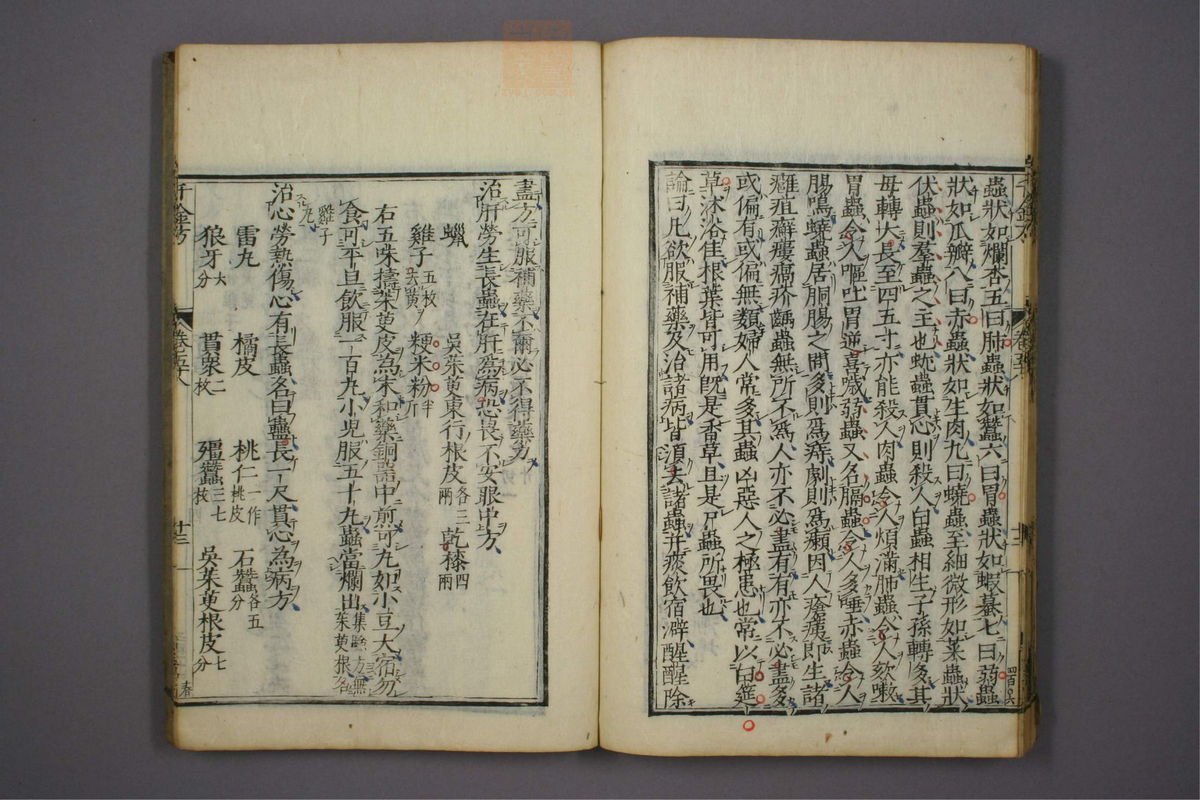 蟲狀如爛杏五曰肺蟲狀如蠶六曰胃蟲狀如蝦蟇七曰弱蟲
狀如瓜瓣八曰赤蟲狀如生肉九曰蟯蟲至細微形如菜蟲狀
伏蟲則羣蟲之主也蚘蟲貫心則殺人白蟲相生子孫轉多其
母轉大長至四五寸亦能殺人肉蟲令人煩滿肺蟲令人欬嗽
胃蟲令人嘔吐胃逆喜噦弱蟲又名膈蟲令人多唾赤蟲令人
腸鳴蟯蟲居胴腸之間多則爲痔劇則爲癩因人瘡痍即生諸
癰疽癬瘻瘑疥齲蟲無所不爲人亦不必盡有有亦不必盡多
或偏有或偏無類婦人常多其蟲凶惡人之極患也常以白筵
草沐浴佳根葉皆可用既是香草且是尸蟲所畏也
論曰凡欲服補藥及治諸病皆須去諸蟲并痰飲宿澼醒醒除
盡方可服補藥不爾必不得藥力
治肝勞生長蟲在肝爲病恐畏不安眼中方
蠟 吳茱萸東行根皮各三兩 乾漆四兩
雞子五枚去黃 粳米粉半斤
右五味擣茱萸皮為末和藥銅器中煎可丸如小豆大宿勿
食可平旦飲服一百丸小兒服五十丸蟲當爛出集驗方無茱萸根名
雞子丸
治心勞熱傷心有長蟲名曰蠱長一尺貫心為病方
雷丸 橘皮 桃仁一作桃皮 石蠶各五分
狼牙六分 貫衆二枚 殭蠶三七枚 吳茱萸根皮七分
千金方
卷五十八
廿三